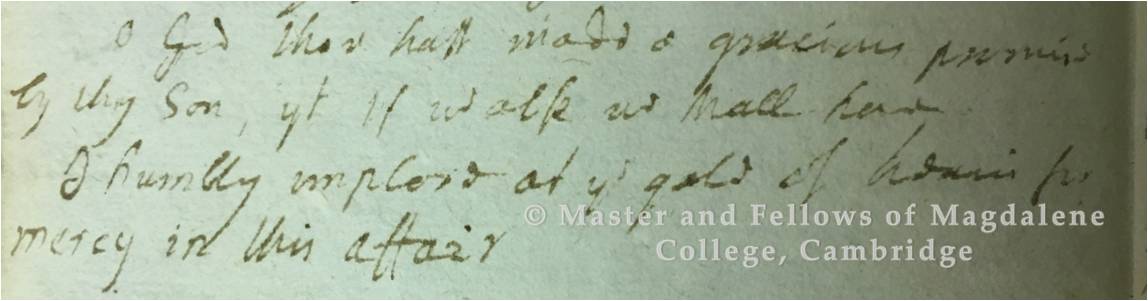 O God thou hast made a gracious promise
by thy Son, yt If we ask we shall have
I humbly implore at ye gate of heaven for
mercy in this affair
© Master and Fellows of Magdalene
College, Cambridge